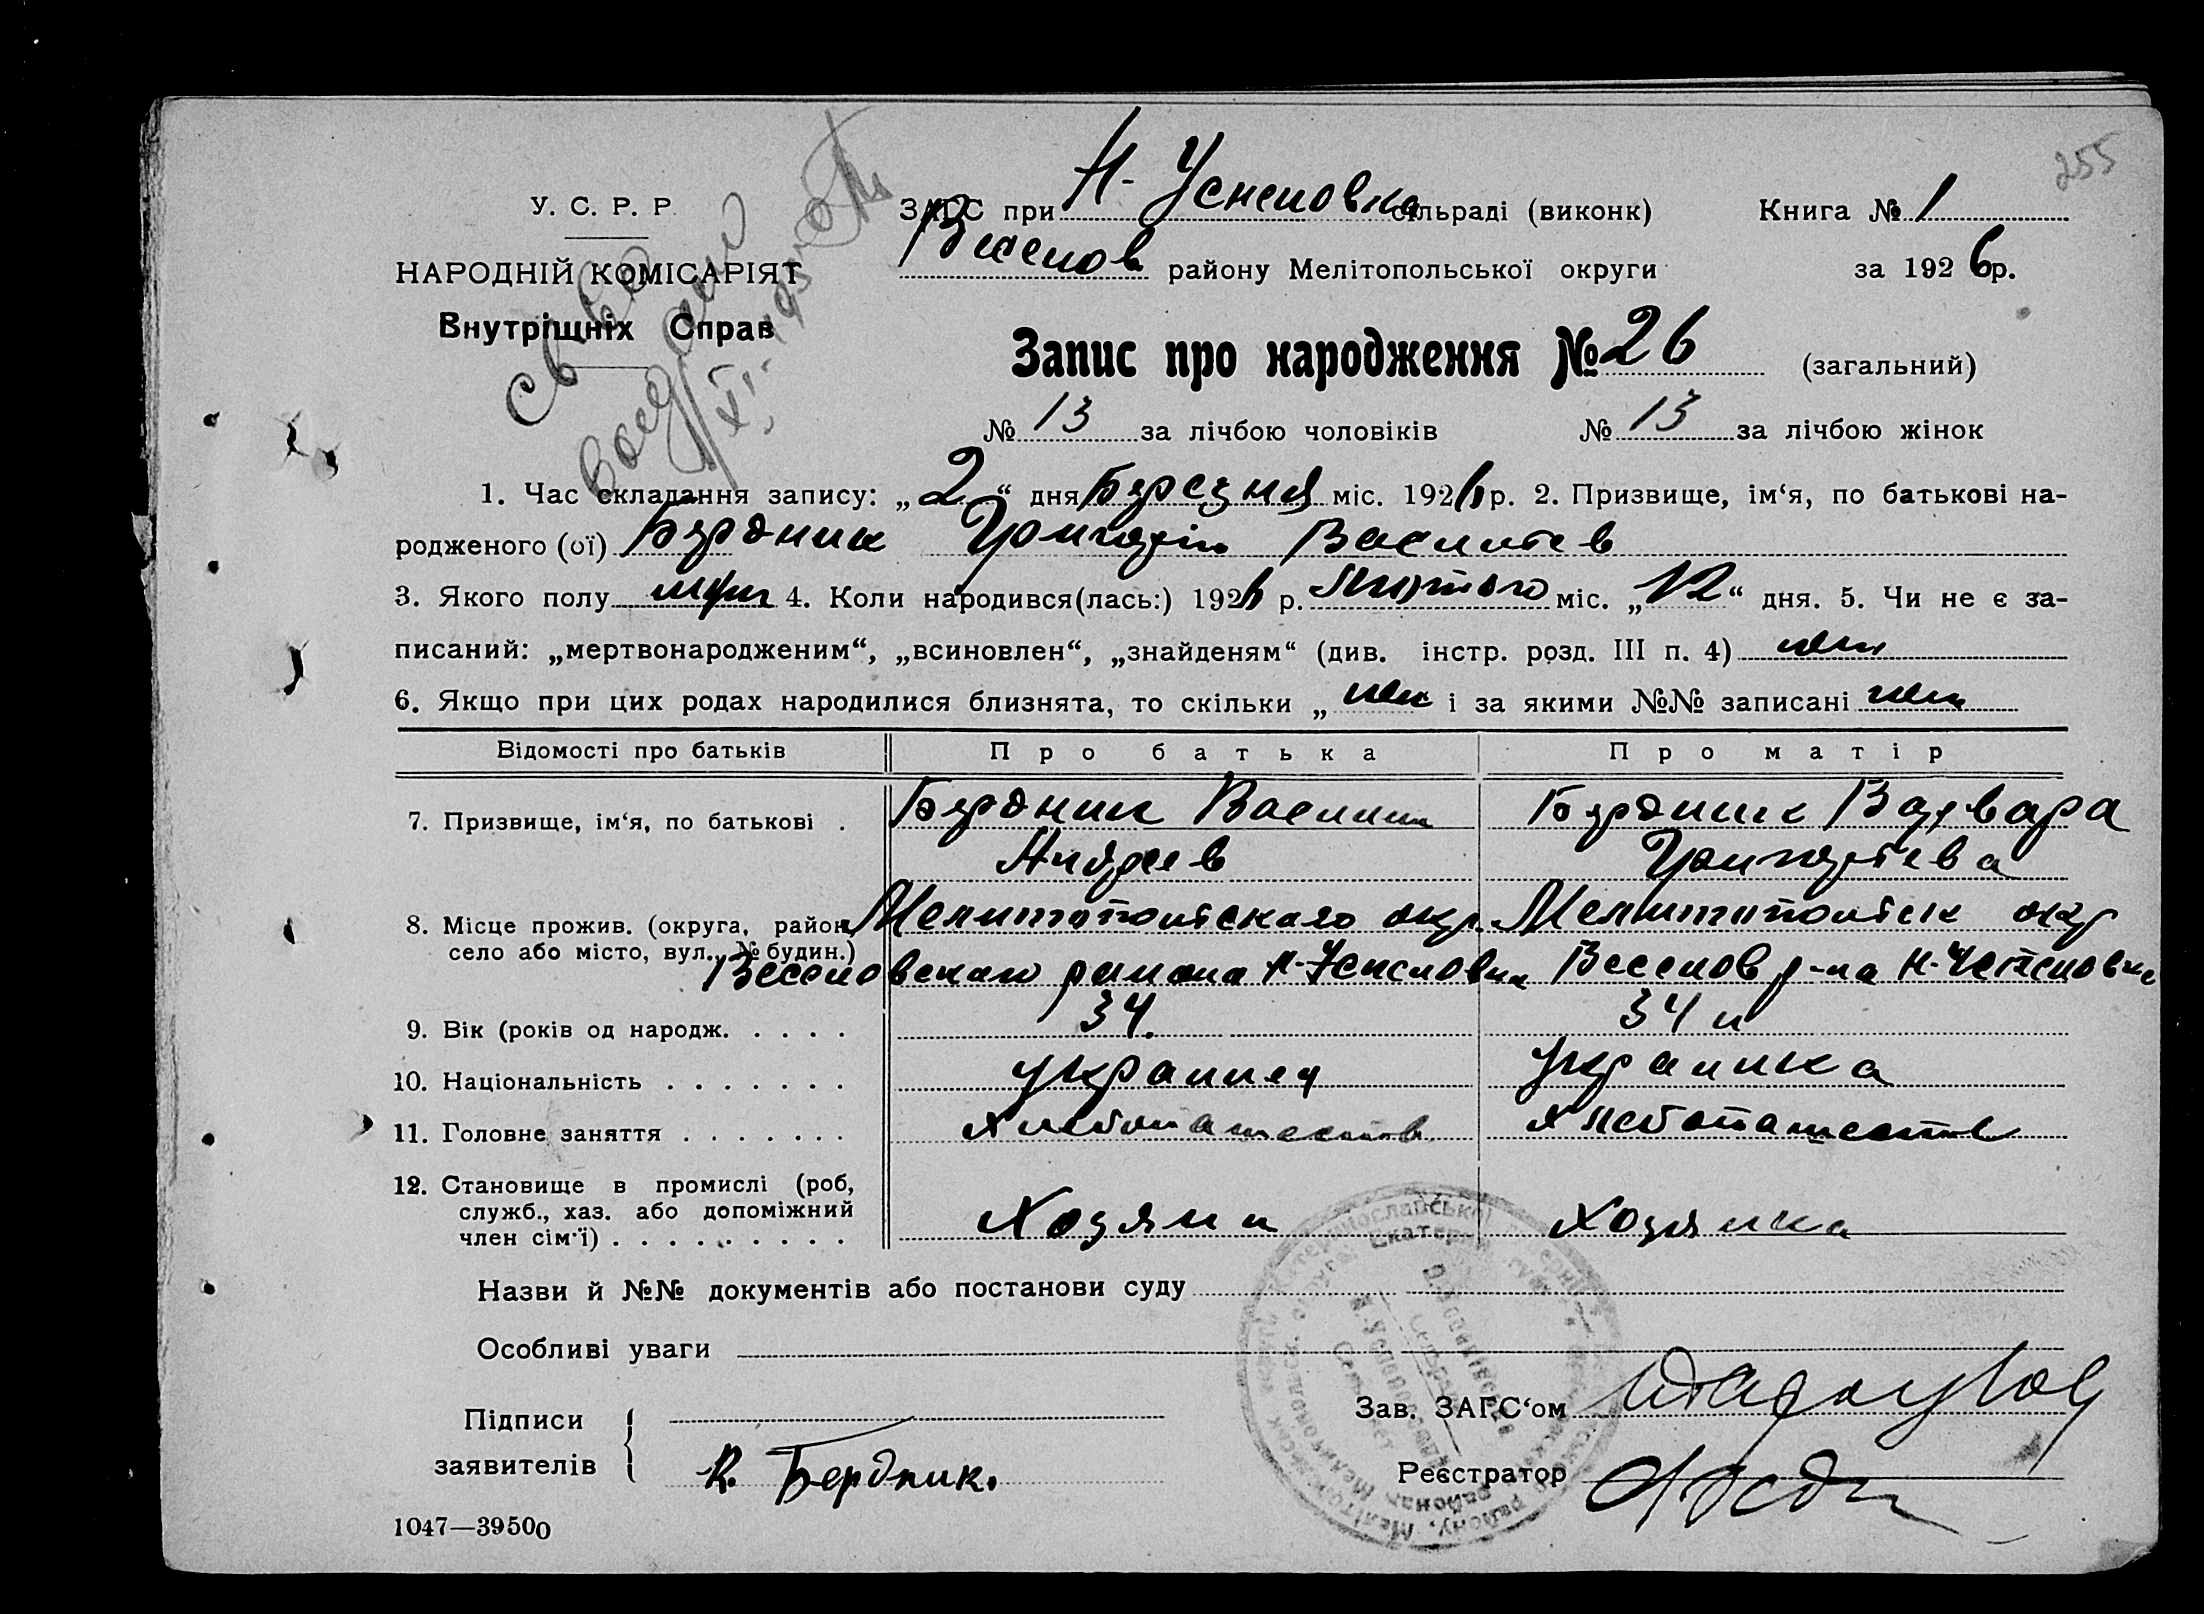 255
У. С. Р. Р.
НАРОДНІЙ КОМІСАРІЯТ
Внутрішніх Справ
ЗАГС при Н-Успеновка сільраді (виконк) Книга № 1
Веселов району Мелітопольської округи за 1926р.
Запис про народження № 26 (загальний)
№ 13 за лічбою чоловіків № 13 за лічбою жінок
1. Час складання запису: „2“ дня Березня міс. 1926 р. 2. Призвище, ім‘я, по батькові на-
родженого (ої) Бердник Григорій Васильев
3. Якого полу муж 4. Коли народився(лась:) 1926 р. Лютого міс. „12“ дня. 5. Чи не є за-
писаний: „мертвонародженим“, „всиновлен“, „знайденям“ (див. інстр. розд. III п. 4) нет
6. Якщо при цих родах народилися близнята, то скільки „ нет і за якими №№ записані нет
Відомості про батьків Про батька Про матір
7. Призвище, ім‘я, по батькові . Бердник Василий Бердник Варвара
Андреев Григорьева
8. Місце прожив. (округа, район, Мелитопольскаго окр. Мелитопольск окр
село або місто, вул., № будин.)
Веселовскаго района Н-Успеновка Веселов р-на Н-Успеновка
9. Вік (років од народж. . . . . 34. 34
10. Національність . . . . . . . украинец украинка
11. Головне заняття . . . . . . . хлебопашеств хлебопашеств
12. Становище в промислі (роб,
служб., хаз. або допоміжний Хозяин хозяйка
член сім‘ї) . . . . . . . . .
Назви й №№ документів або постанови суду
Особливі уваги
Підписи
заявителів В. Бердник.
Зав. ЗАГС‘ом
Реєстратор
1047—39500